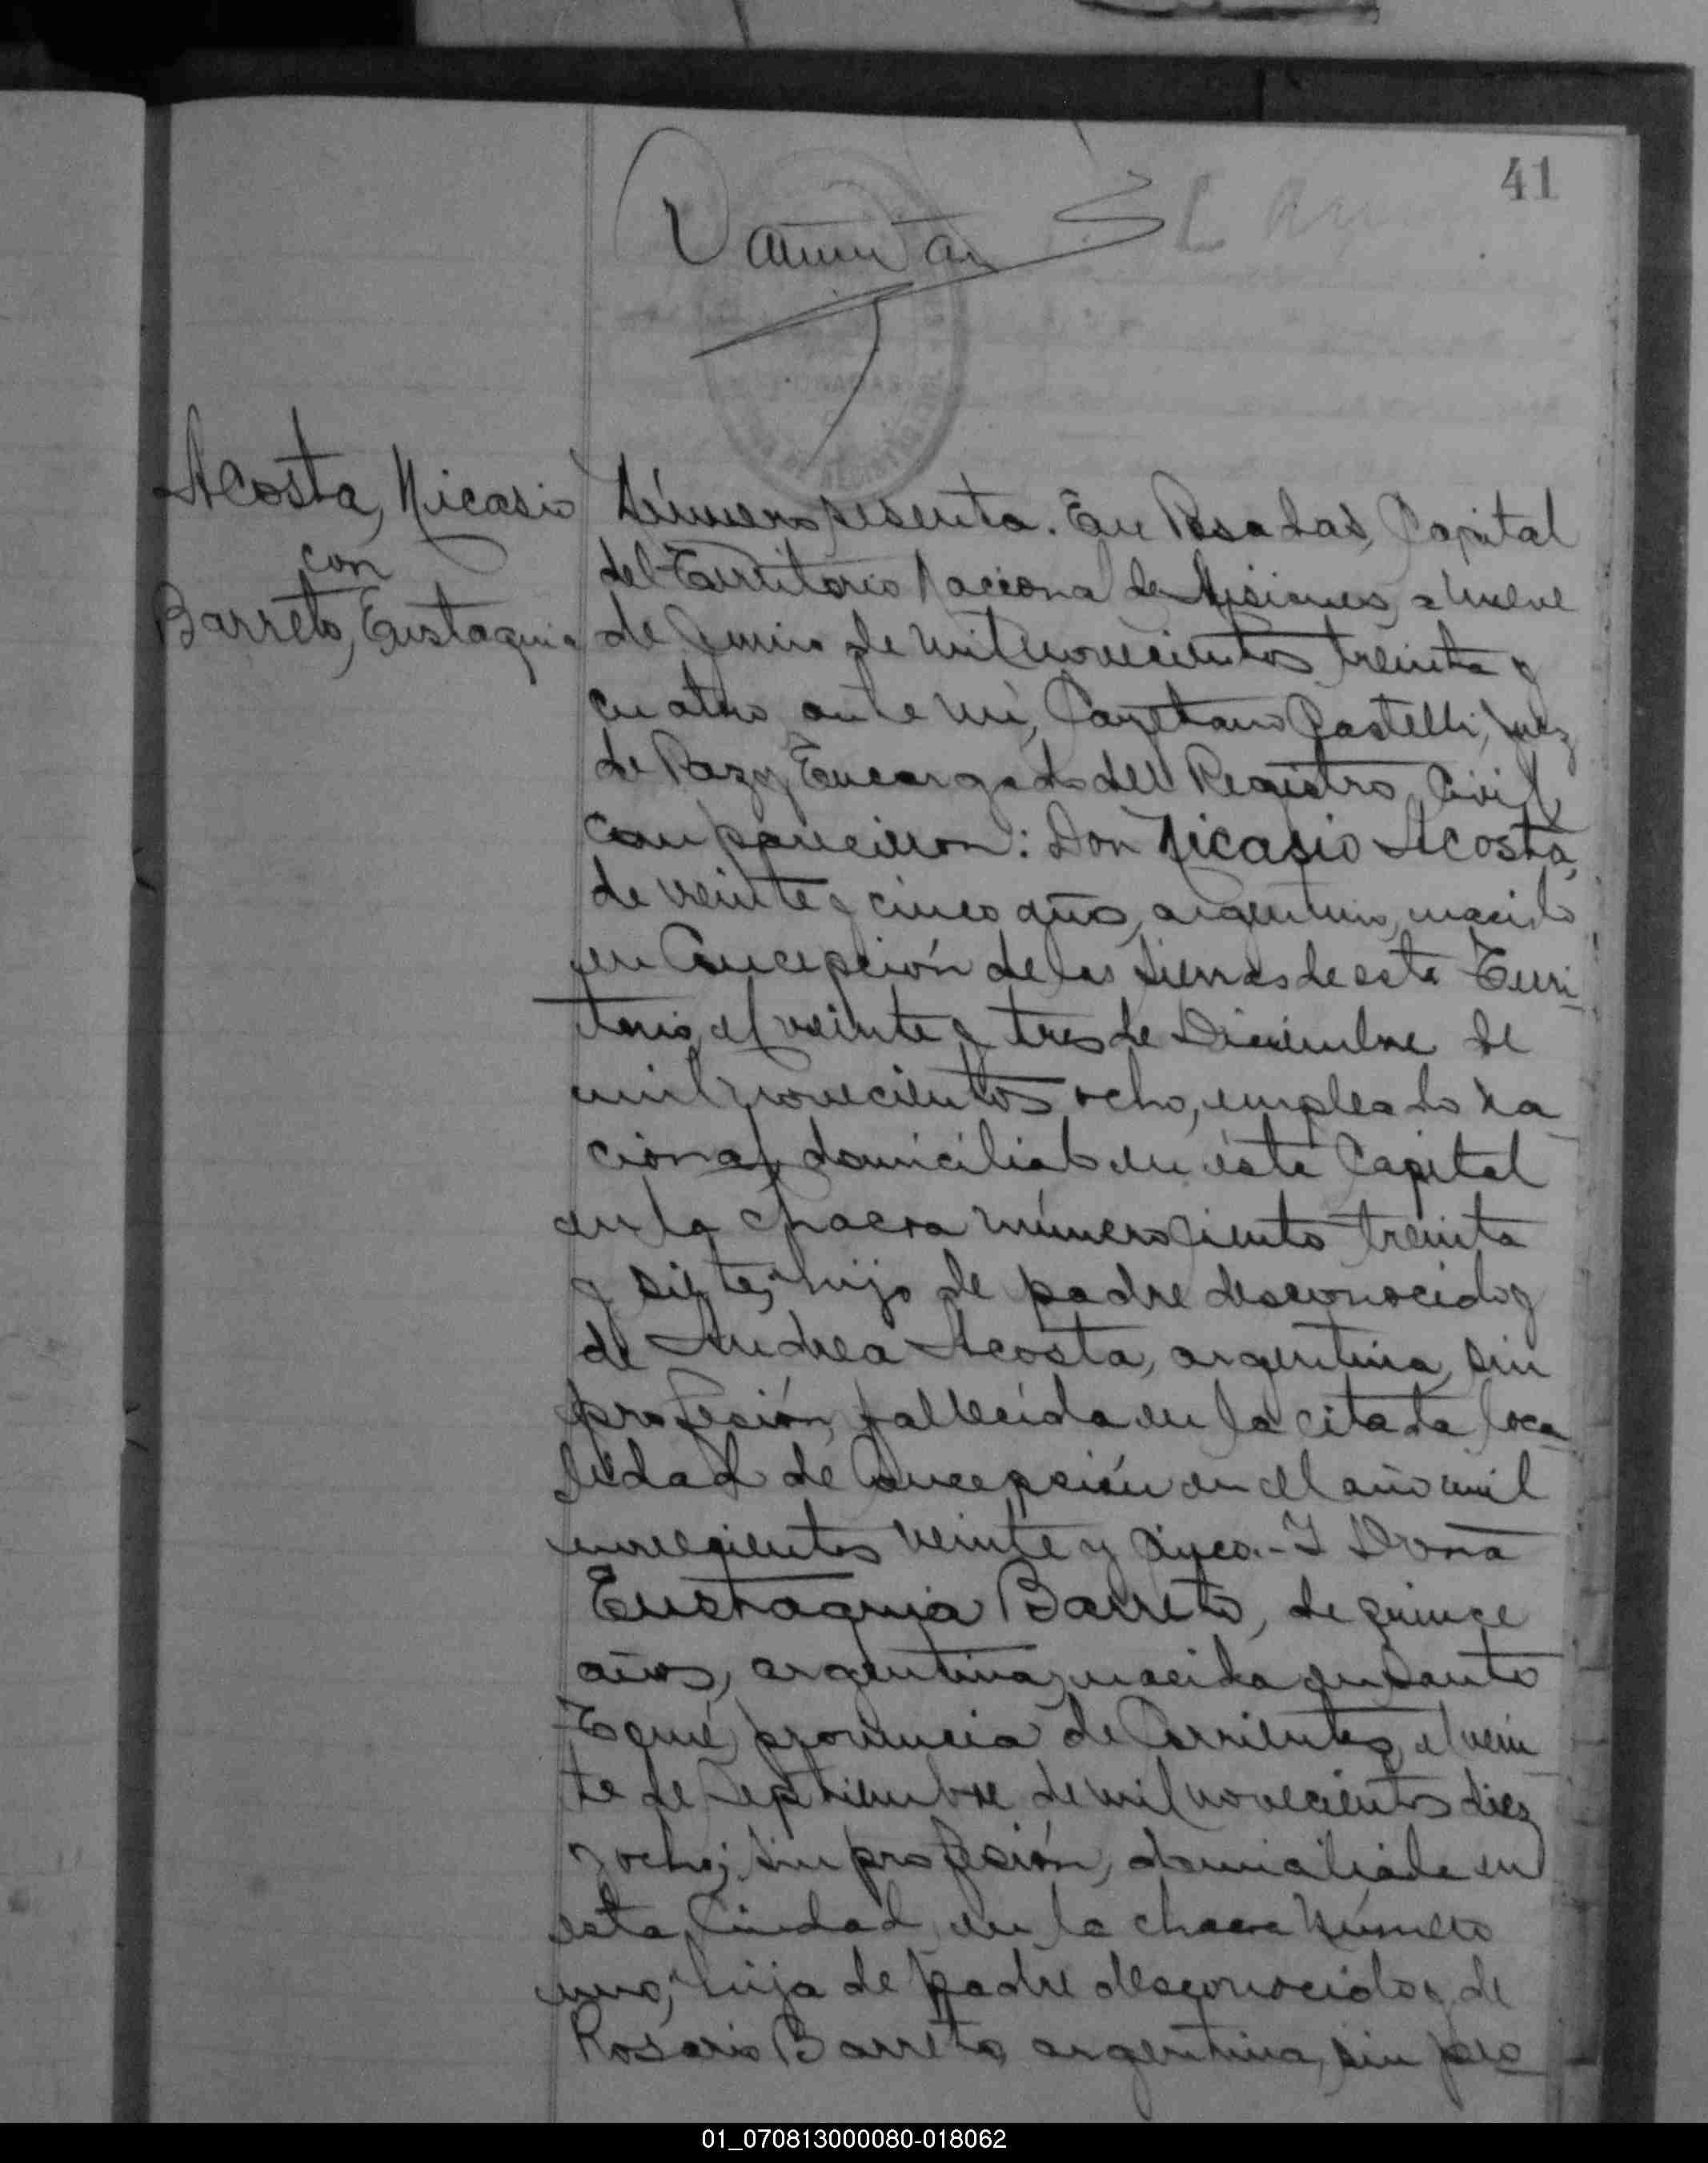 41
Acosta, Nicasio
con
Barreto, Eustaquia
Número sesenta. En Posadas, Capital
del Territorio Nacional de Misiones, a nueve
de Junio de mil novecientos treinta y
cuatro ante mí, Cayetano Castelli, Juez
de Paz y Encargado del Registro Civil,
comparecieron: Don Nicasio Acosta,
de veinte y cinco años, argentino, nacido
en Concepción de las Sierras de este Terri-
torio, el veinte y tres de Diciembre de
mil novecientos ocho, empleado na-
cional, domiciliado en ésta Capital
en la chacra número ciento treinta
y siete; hijo de padre desconocido y
de Andrea Acosta, argentina, sin
profesión, fallecida en la citada loca-
lidad de Concepción en el año mil
novecientos veinte y cinco.- Y Doña
Eustaquia Barreto, de quince
años, argentina, nacida en Santo
Tomé, provincia de Corrientes, el vein-
te de Septiembre de mil novecientos diez
y ocho; sin profesión, domiciliada en
esta Ciudad en la chacra número
uno; hija de padre desconocido y de
Rosario Barreto, argentina, sin pro
01_070813000080-018062